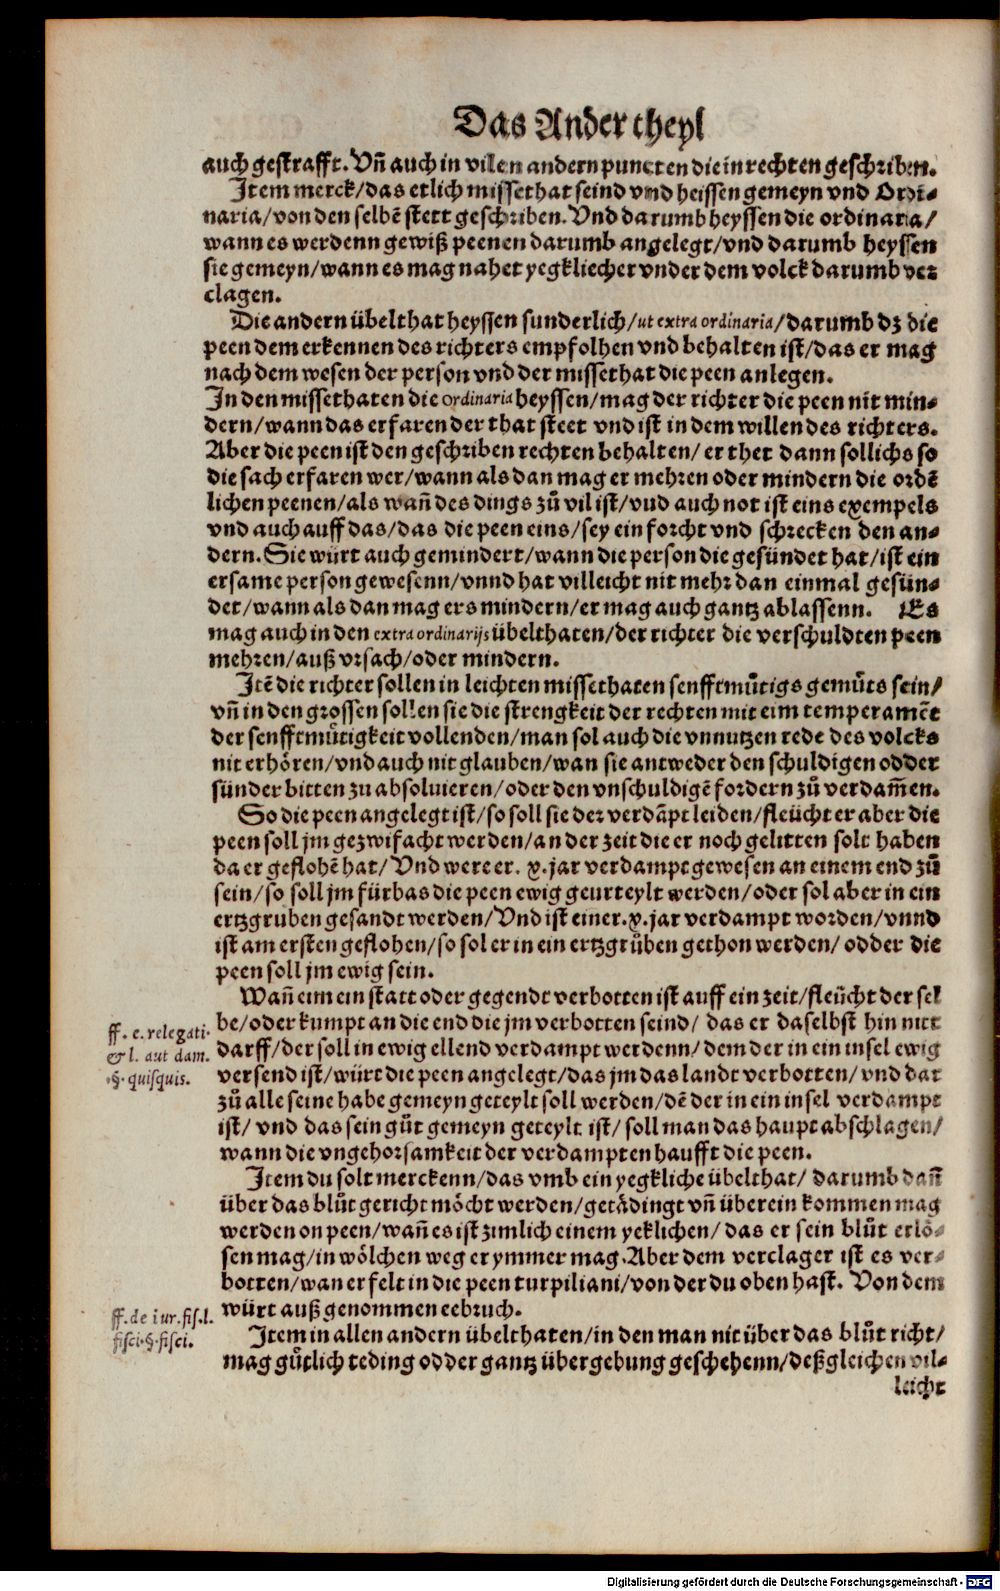 Das Ander theyl
auch gestrafft. Vñ auch in vilen andern puncten die in rechten geschriben.
Item merck/das etlich missethat seind vnd heissen gemeyn vnd Ordi-
naria/von den selbē stett geschriben. Vnd darumb heyssen die ordinaria/
wann es werdenn gewiß peenen darumb angelegt/vnd darumb heyssen
sie gemeyn/wann es mag nahet yegkliecher vnder dem volck darumb ver
clagen.
Die andern übelthat heyssen sunderlich/ut extra ordinaria/darumb dz die
peen dem erkennen des richters empfolhen vnd behalten ist/das er mag
nach dem wesen der person vnd der missethat die peen anlegen.
In den missethaten die ordinaria heyssen/mag der richter die peen nit min-
dern/wann das erfaren der that steet vnd ist in dem willen des richters.
Aber die peen ist den geschriben rechten behalten/ er thet dann sollichs so
die sach erfaren wer/wann als dan mag er mehren oder mindern die ordē
lichen peenen/als wañ des dings zů vil ist/vnd auch not ist eins exempels
vnd auch auff das/das die peen eins/sey ein forcht vnd schrecken den an-
dern. Sie würt auch gemindert/wann die person die gesündet hat/ist ein
ersame person gewesenn/vnnd hat villeicht nit mehr dan einmal gesün-
det/wann als dan mag ers mindern/er mag auch gantz ablassenn. Es
mag auch in den extra ordinarijs übelthaten/der richter die verschuldten peen
mehren/auß vrsach/oder mindern.
Itē die richter sollen in leichten missethaten senfftmůtigs gemůts sein/
vñ in den grossen sollen sie die strengkeit der rechten mit eim temperamēt
der senfftmůtigkeit vollenden/man sol auch die vnnutzen rede des volcks
nit erhören/vnd auch nit glauben/wan sie antweder den schuldigen odder
sünder bitten zu absoluieren/oder den vnschuldigē fordern zů verdam̄en.
So die peen angelegt ist/so soll sie der verdāpt leiden/fleücht er aber die
peen soll jm gezwifacht werden/an der zeit die er noch gelitten solt haben
da er geflohē hat/Vnd were er. x. jar verdampt gewesen an einem end zů
sein/so soll jm fürbas die peen ewig geurteylt werden/oder sol aber in ein
ertzgruben gesandt werden/Vnd ist einer. x. jar verdampt worden/vnnd
ist am ersten geflohen/so sol er in ein ertzgrůben gethon werden/ odder die
peen soll jm ewig sein.
Wañ eim ein statt oder gegendt verbotten ist auff ein zeit/fleücht der sel
be/oder kumpt an die end die jm verbotten seind/ das er daselbst hin nitt
darff/der soll in ewig ellend verdampt werdenn/dem der in ein insel ewig
versend ist/würt die peen angelegt/das jm das landt verbotten/vnd dar
zů alle seine habe gemeyn geteylt soll werden/dē der in ein insel verdampt
ist/ vnd das sein gůt gemeyn geteylt ist/ soll man das haupt abschlagen/
wann die vngehorsamkeit der verdampten haufft die peen.
ff. e. relegati.
& l. aut dam.
.§. quisquis.
Item du solt merckenn/das vmb ein yegkliche übelthat/ darumb dañ
über das blůt gericht möcht werden/getådingt vñ überein kommen mag
werden on peen/wañ es ist zimlich einem yeklichen/ das er sein blůt erlö-
sen mag/in wölchen weg er ymmer mag. Aber dem verclager ist es ver-
botten/wan er felt in die peen turpiliani/von der du oben hast. Von dem
würt auß genommen eebruch.
ff. de iur. fis. l.
fisci. §. fisci.
Item in allen andern übelthaten/in den man nit über das blůt richt/
mag gůtlich teding odder gantz übergebung geschehenn/deßgleichen vil-
leicht
Digitalisierung gefördert durch die Deutsche Forschungsgemeinschaft - DFG